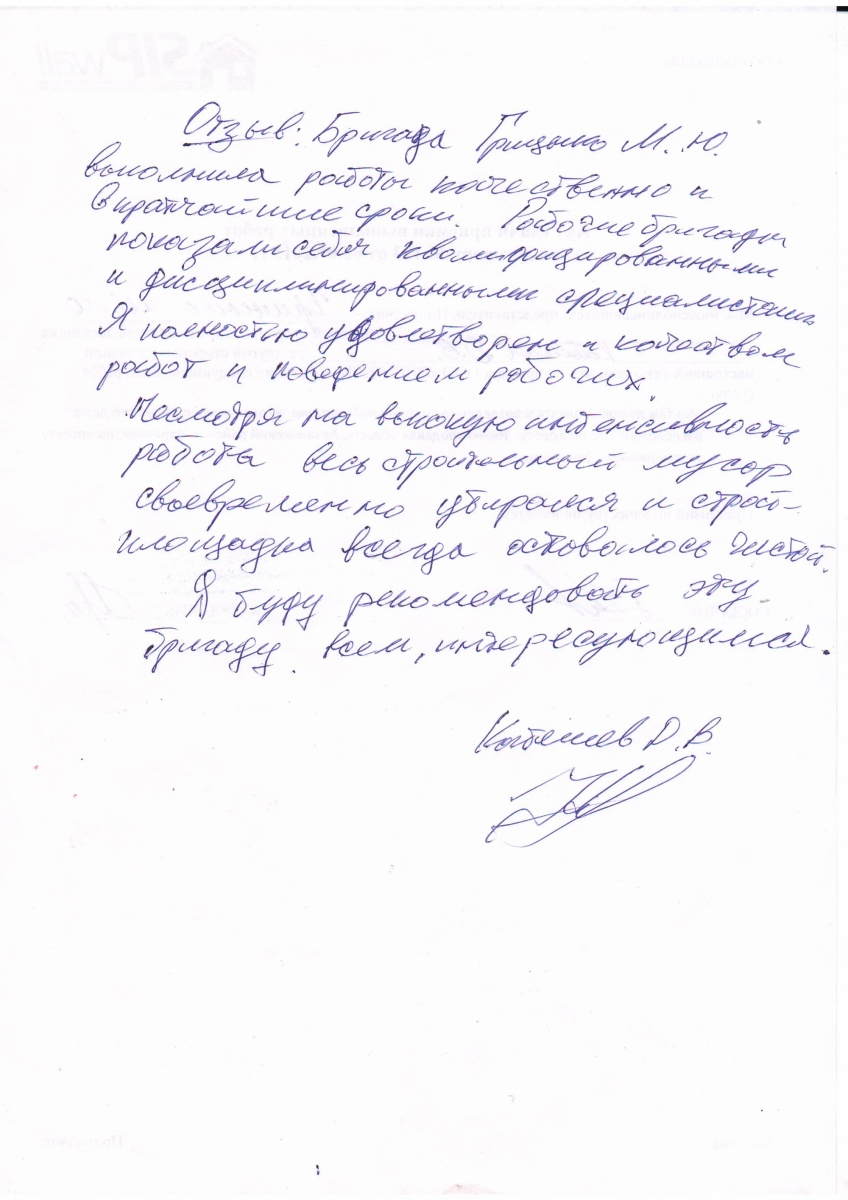 Отзыв: Бригада Гриценко М.Ю.
выполнила работы качественно и
в кратчайшие сроки. Рабочие бригады
показали себя квалифицированными
и дисциплинированными специалистами
Я полностью удовлетворен и качеством
работ и поведением рабочих.
Несмотря на высокую интенсивность
работы весь строительный мусор
своевременно убирался и строй-
площадка всегда оставалось чистой.
Я буду рекомендовать эту
бригаду всем, интересующимся.
Д.В.
SIP wall